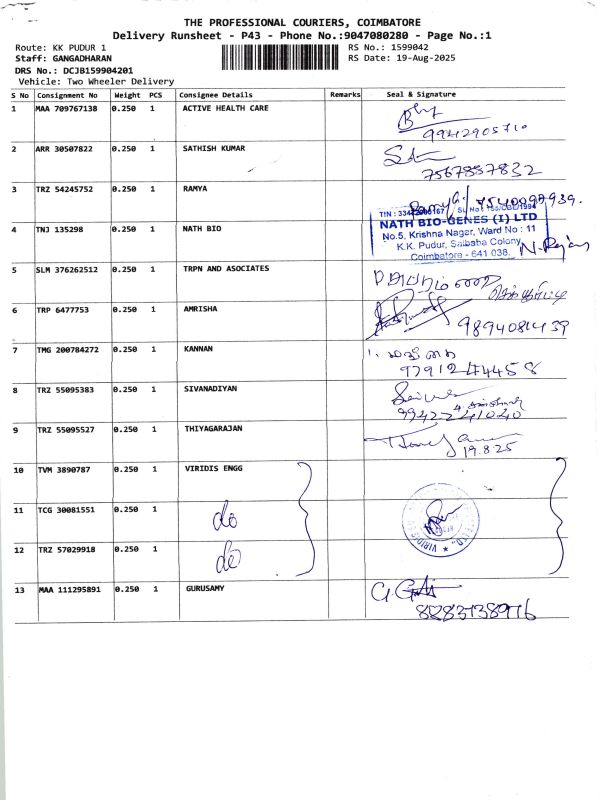 THE PROFESSIONAL COURIERS, COIMBATORE
Delivery Runsheet - P43 - Phone No.:9047080280 - Page No.:1
Route: KK PUDUR 1
RS No.: 1599042
Staff: GANGADHARAN
RS Date: 19-Aug-2025
DRS No.: DCJB159904201
Vehicle: Two Wheeler Delivery
S No Consignment No Weight PCS Consignee Details Remarks Seal & Signature
1 MAA 709767138 0.250 1 ACTIVE HEALTH CARE
9942905710
2 ARR 30507822 0.250 1 SATHISH KUMAR
7567887832
3 TRZ 54245752 0.250 1 RAMYA
Ramya
4 TNJ 135298 0.250 1 NATH BIO
NATH BIO-GENES (I) LTD
No.5, Krishna Nagar, Ward No : 11
K.K. Pudur, Saibaba Colony,
Coimbatore - 641 038.
5 SLM 376262512 0.250 1 TRPN AND ASOCIATES
6 TRP 6477753 0.250 1 AMRISHA
9894081439
7 TMG 200784272 0.250 1 KANNAN
9791244458
8 TRZ 55095383 0.250 1 SIVANADIYAN
9942241040
9 TRZ 55095527 0.250 1 THIYAGARAJAN
19.8.25
10 TVM 3890787 0.250 1 VIRIDIS ENGG
11 TCG 30081551 0.250 1 do
12 TRZ 57029918 0.250 1 do
13 MAA 111295891 0.250 1 GURUSAMY